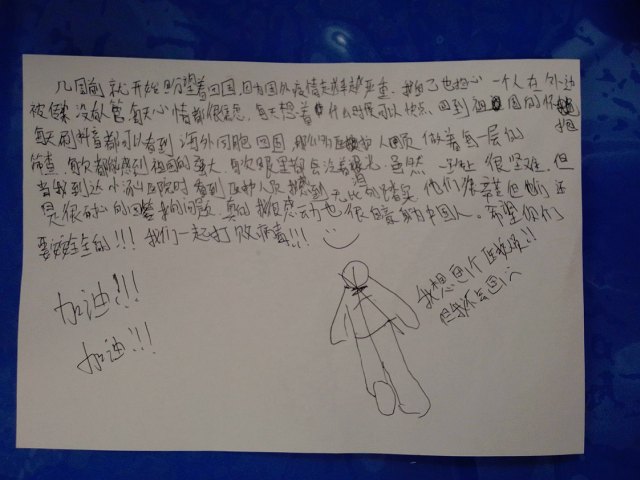 几周前就开始盼望着回国,因为国外疫情越来越严重,我怕了也担心一个人在外边
被传染没有人管每天心情都很焦虑,每天想着什么时候可以快点回到祖国的怀抱
每天刷抖音都可以看到海外同胞回国,那么多医护人员做着每一层的
筛查,每次都能感到祖国的强大,每次眼里都会泛着泪光.虽然一路上很坚难,但
当我到达小汤山医院时看到医护人员我感到无比的踏实他们很辛苦但他们还
是很耐心的回答我的问题,真的我很感动也很自豪中国人.希望你们
要安全的!!!我们一起打败病毒!!!
加油!!!
加油!!!
我想画个医护人员!!
但我不会画